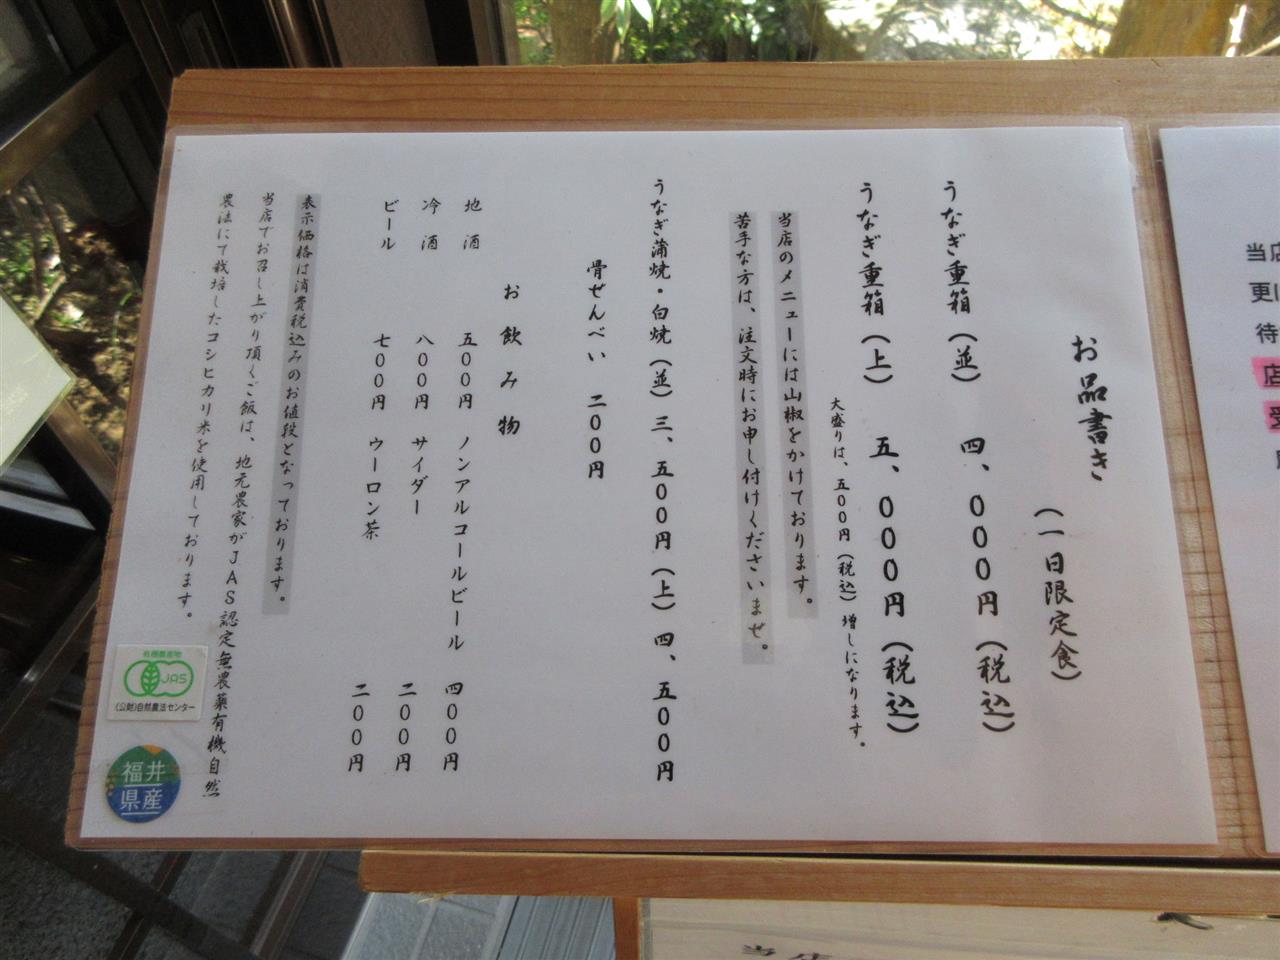 お品書き
(一日限定食)
うなぎ重箱(並) 四、000円(税込)
うなぎ重箱(上) 五、000円(税込)
大盛りは、五00円(税込)増しになります。
当店のメニューには山椒をかけております。
苦手な方は、注文時にお申し付けくださいませ。
うなぎ蒲焼・白焼(並)三、五00円(上)四、五00円
骨ぜんべい 二00円
お飲み物
地酒 五00円 ノンアルコールビール 四00円
冷酒 八00円 サイダー 二00円
ビール 七00円 ウーロン茶 二00円
表示価格は消費税込みのお値段となっております。
当店でお召し上がり頂くご飯は、地元農家がJAS認定無農薬有機自然
農法にて栽培したコシヒカリ米を使用しております。
有機農産物
JAS
(公財)自然農法センター
福井
県産
当店
更
待
店
受
当店